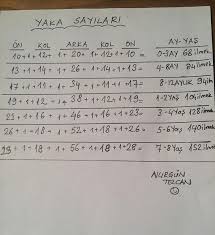 YAKA SAYILARI
ÖN KOL ARKA KOL ÖN AY-YAŞ
10+1+12+1+20+1+12+1+10= 0-3AY 68 ilmek
13+1+14+1+26+1+14+1+13= 4-8AY 84 ilmek
17+1+11+1+34+1+11+1+17= 8-12AYLIK 94
19+1+12+1+38+1+12+1+19= 1-2 YAŞ 104 ilmek
23+1+16+1+46+1+16+1+23= 3-4 YAŞ 128 ilmek
26+1+18+1+52+1+18+1+26= 5-6 YAŞ 140 ilmek
+1+18+1+56+1+18+1+28= 7-8 YAŞ 152 ilmek
NURGÜN
TEZCAN